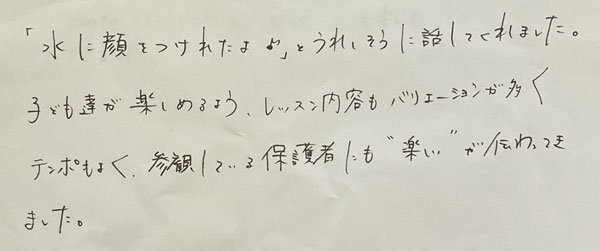 「水に顔をつけれたよ♪」とうれしそうに話してくれました。
子ども達が楽しめるよう、レッスン内容もバリエーションが多く
テンポもよく、参観している保護者にも“楽しい”が伝わってき
ました。